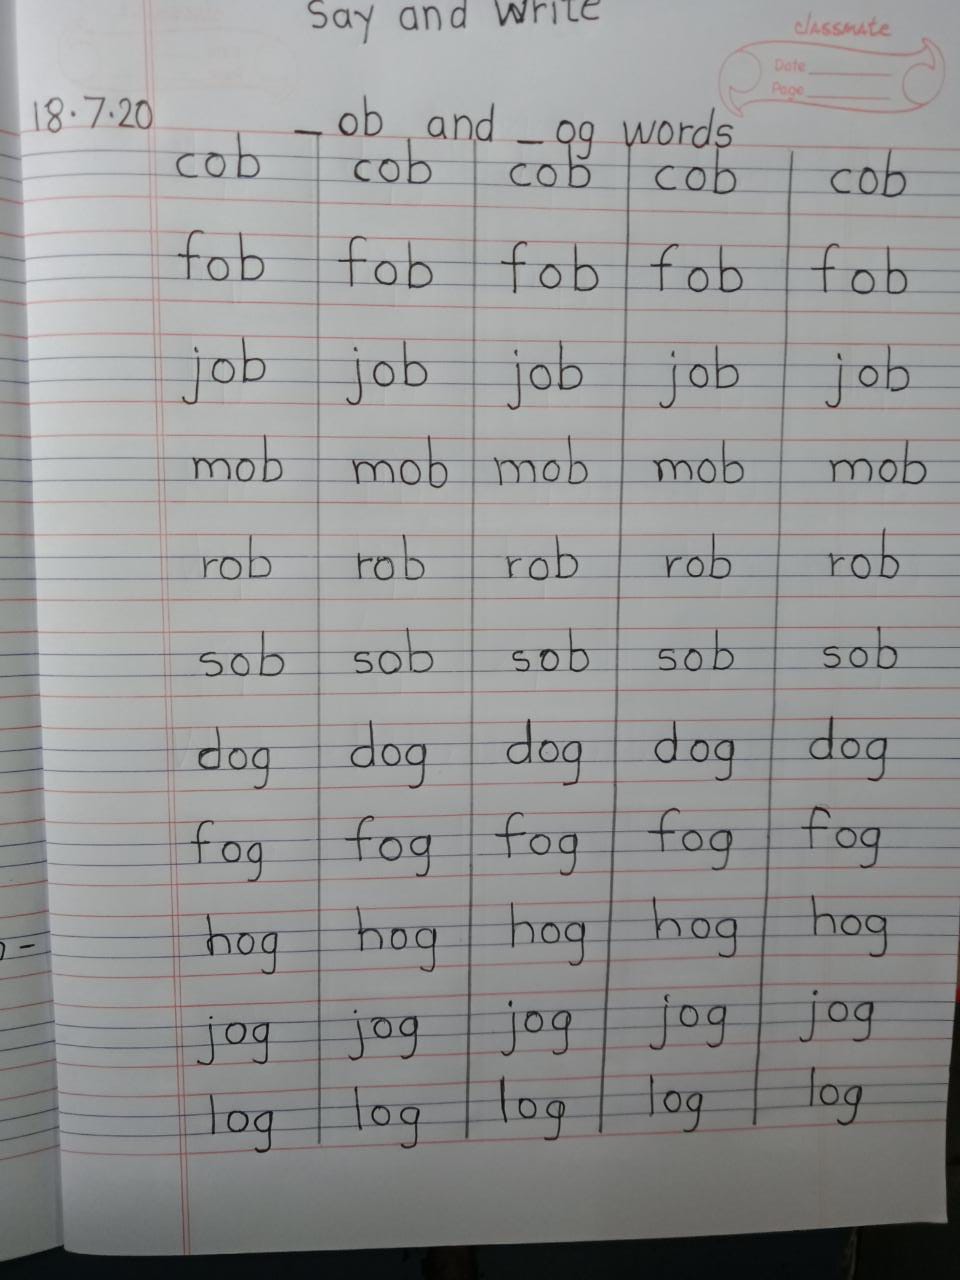 Say and Write
classmate
Date
Page
18.7.20
_ ob and _ og words
cob cob cob cob cob
fob fob fob fob fob
job job job job job
mob mob mob mob mob
rob rob rob rob rob
sob sob sob sob sob
dog dog dog dog dog
fog fog fog fog fog
hog hog hog hog hog
jog jog jog jog jog
log log log log log